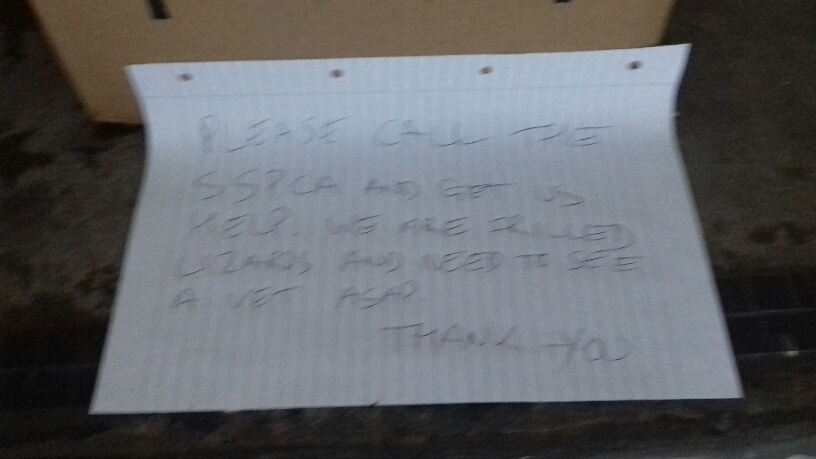 PLEASE CALL THE
SSPCA AND GET US
HELP. WE ARE FRILLED
LIZARDS AND NEED TO SEE
A VET ASAP.
THANK YOU